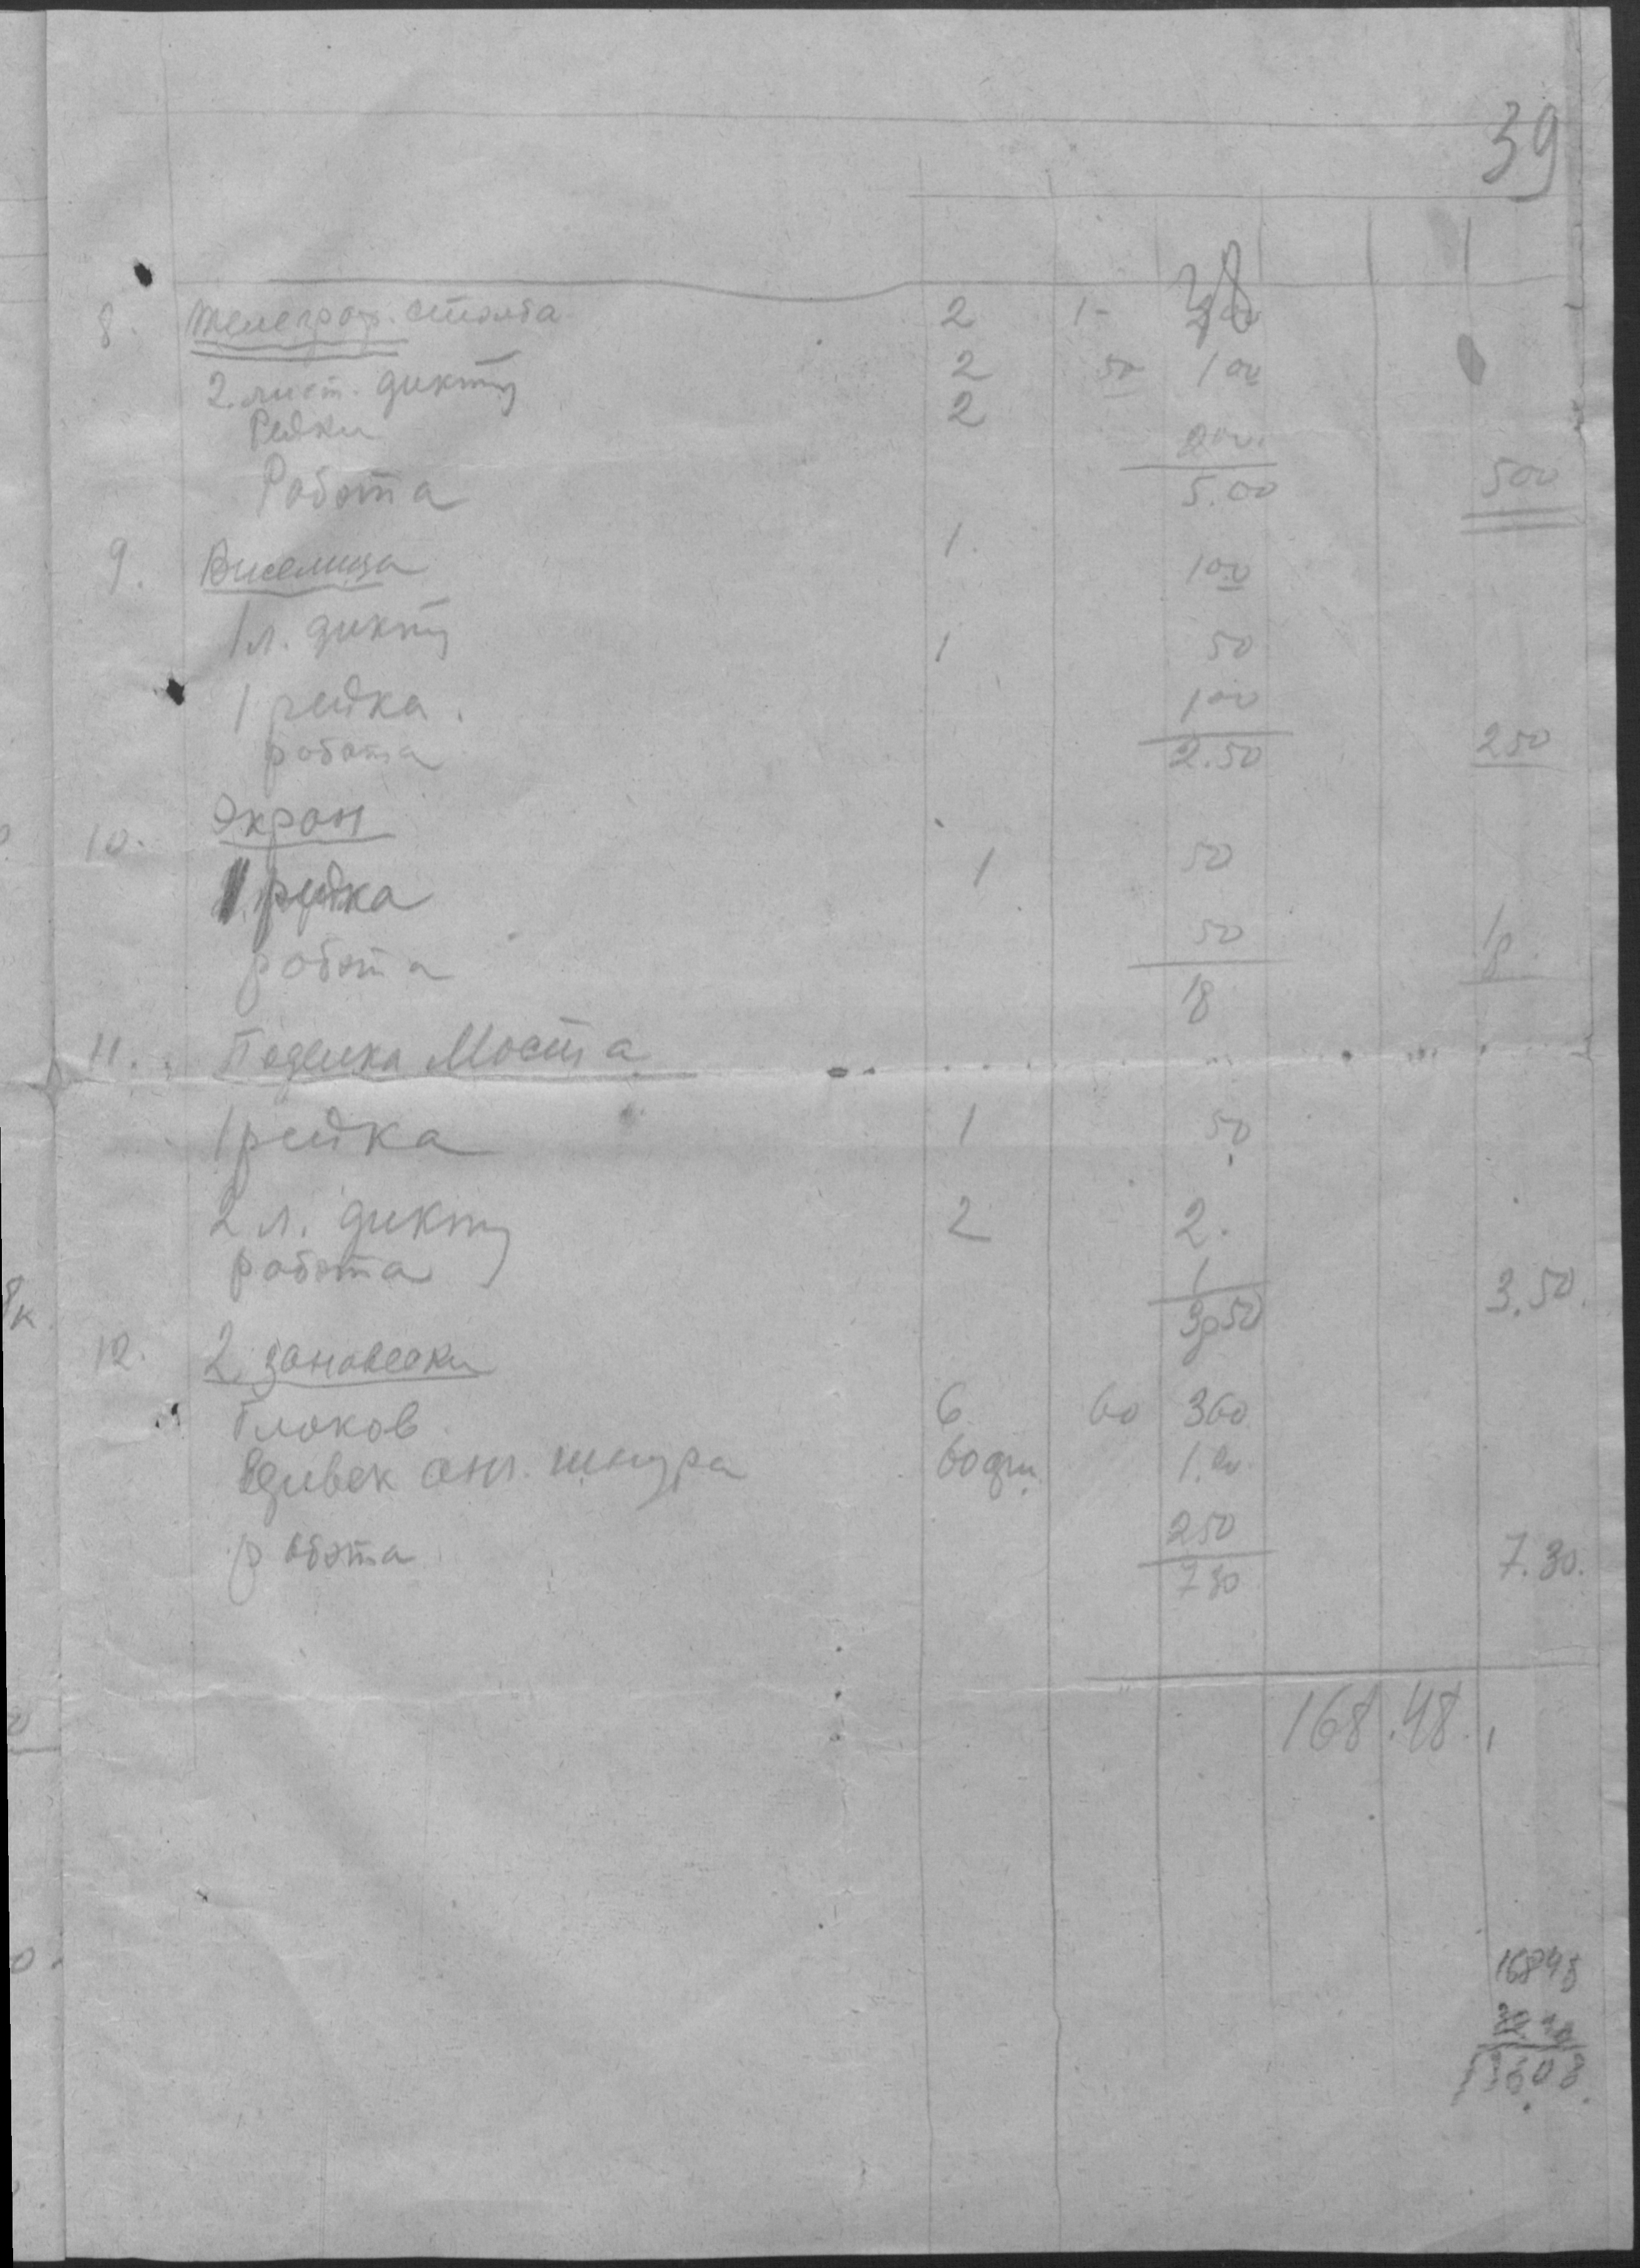 39
38
8. телеграф. столба 2 1- 200
2 лист. дикту 2 50 100
Рейки 2
200.
Робота 5.00 500
9. Виселица 1. 100
1 л. дикту 1 50
1 рейка. 100
робота 2.50 250
10. Экран
1 рейка 1 50
робота 50 1р.
1р
11. Поделка Моста
1 рейка 1 50
2 л. дикту 2 2.
робота 1
3р50 3.50.
12. 2 зановески
Блоков 6 60 360
анг. шнура 1.20.
робота 250 7.30.
730
168.48.
16848